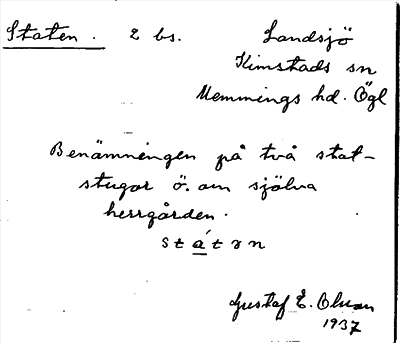 Staten. 2 bs. Landsjö
Kimstads sn
Memmings hd. Ögl
Benämningen på två stat-
stugor ö. om själva
herrgården.
státɘn
Gustaf E. Olsson
1937